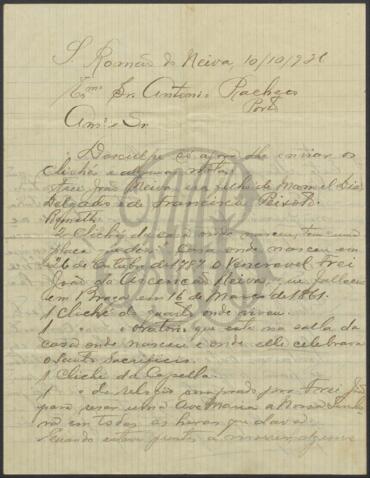 S. Romão do Neiva, 10/10/921
Exmo Sr. Antonio Pacheco
Porto
Amo e Sr
Desculpe só agora lhe enviar os
clichés e algumas notas
Frei João Neiva era filho de Manoel Dias
Delgado e de Francisca Peixoto
2 Clichés da casa onde nasceu, tem uma
placa Casa onde nasceu em
26 de Outubro de 1787 o Veneravel Frei
João da Ascenção Neiva, que falleceu
em Braga em 16 de Março de 1861.
1 Cliché do quarto onde viveu.
1 " o oratorio que está na salla da
casa onde nasceu e onde elle celebrava
o Santo Sacrificio.
1 Cliché da Capella.
1 " do relogio comprado por Frei João
para resar uma Ave Maria a Nossa Senho
ra em todas as horas que dava e
quando estava junto a